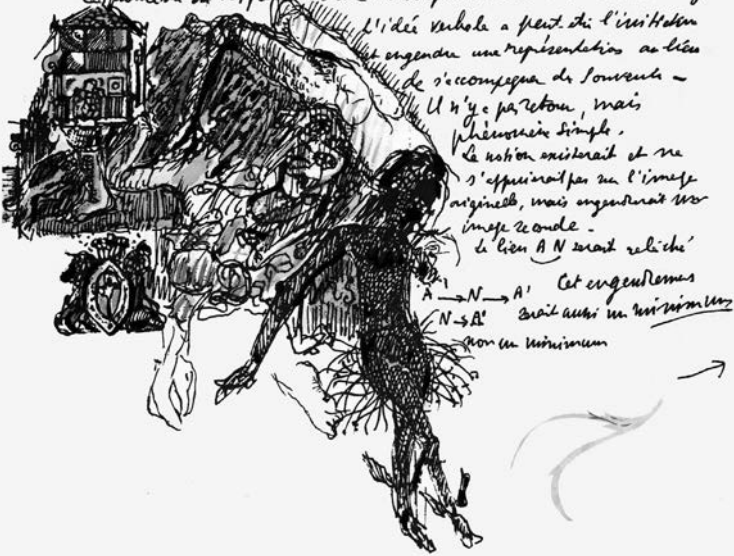 L'idée verbale a peut-être l'initiative
et engendre une représentation au lieu
de s'accompagner de souvenir –
Il n'y a pas retour, mais
phénomène simple.
La notion existerait et ne
s'appuierait pas sur l'image
originelle, mais engendrerait une
image seconde –
Le lien A N serait relâché
A → N → A' Cet engendrement
N → A' serait aussi un minimum
non un minimum